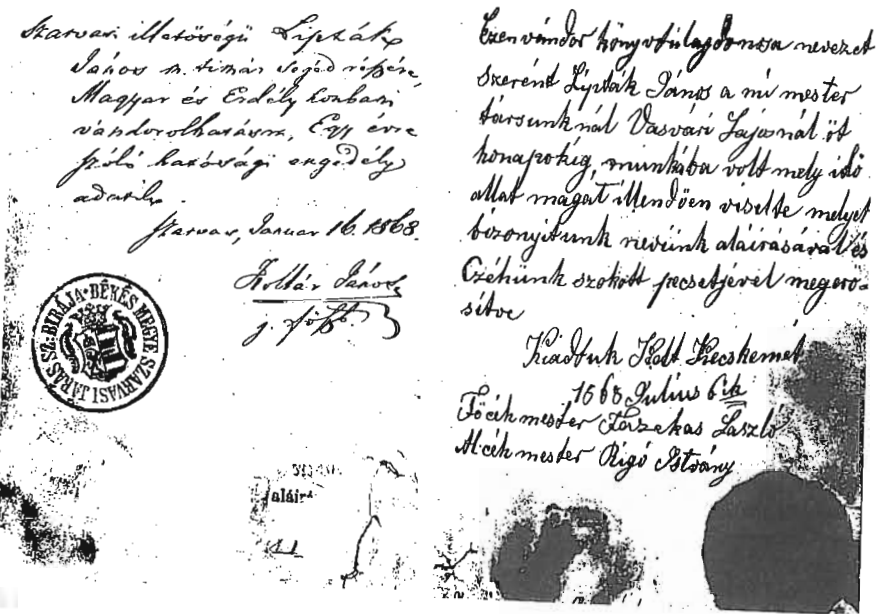 Szarvasi illetőségű Lipták
János m. timár segéd részére,
Magyar és Erdély honbani
vándorolhatásra, Egy évre
szóló hatósági engedély
adatik.
Szarvas, Januar 16. 1868.
Koltár János
j. főb.
BÉKÉS MEGYE SZARVASI JÁRÁS SZ: BIRÁJA
aláir
Ezen vándor könyv túlajdonosa nevezet
szerént Lipták János a mi mester
társunknál Vasvári Lajosnál öt
honapokig, munkába volt mely idö
allat magat illendöen viselte melyet
bizonyitunk nevünk aláirásával és
Czéhünk szokott pecsetjével megero-
sitve
Kiadtuk Kelt Kecskemét
1868 Július 6ik
Föcéh mester Fazekas László
Al. céh mester Rigó István